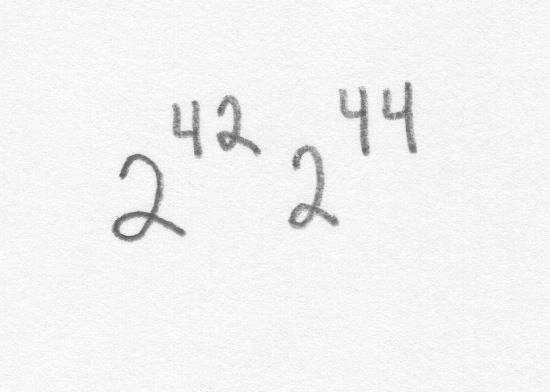 2⁴² 2⁴⁴